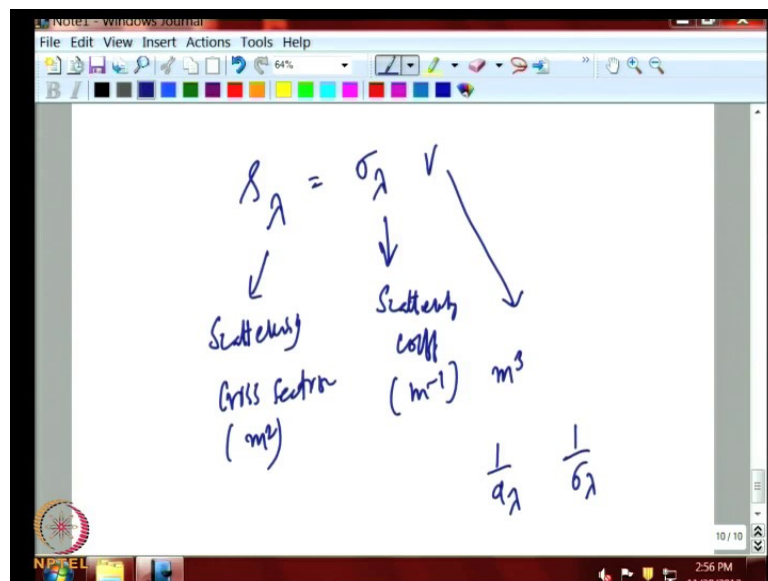 Note1 - Windows Journal
File Edit View Insert Actions Tools Help
64%
B I
s_λ = σ_λ V
Scattering
Cross Section
(m²)
Scattering
coeff
(m⁻¹)
m³
1/a_λ 1/σ_λ
10 / 10
NPTEL
2:56 PM